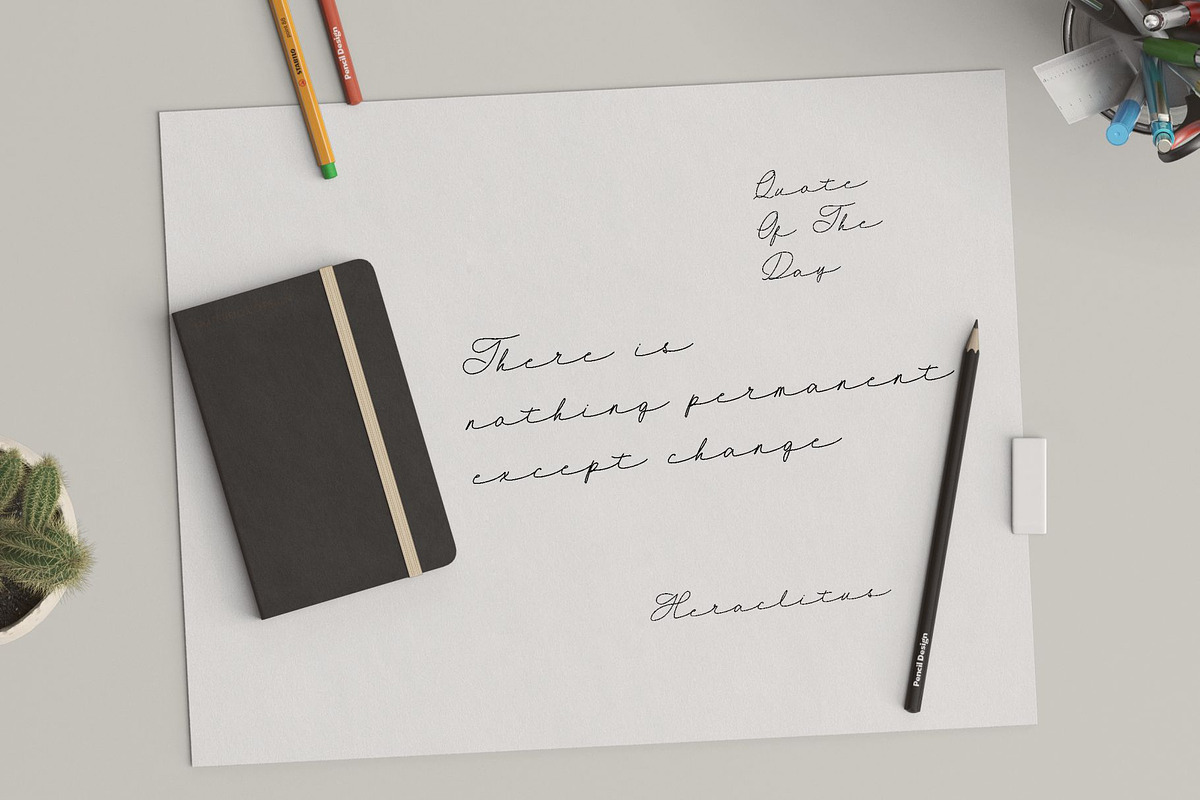 STABILO
Pencil Design
Quote
Of The
Day
There is
nothing permanent
except change
Heraclitus
Pencil Design